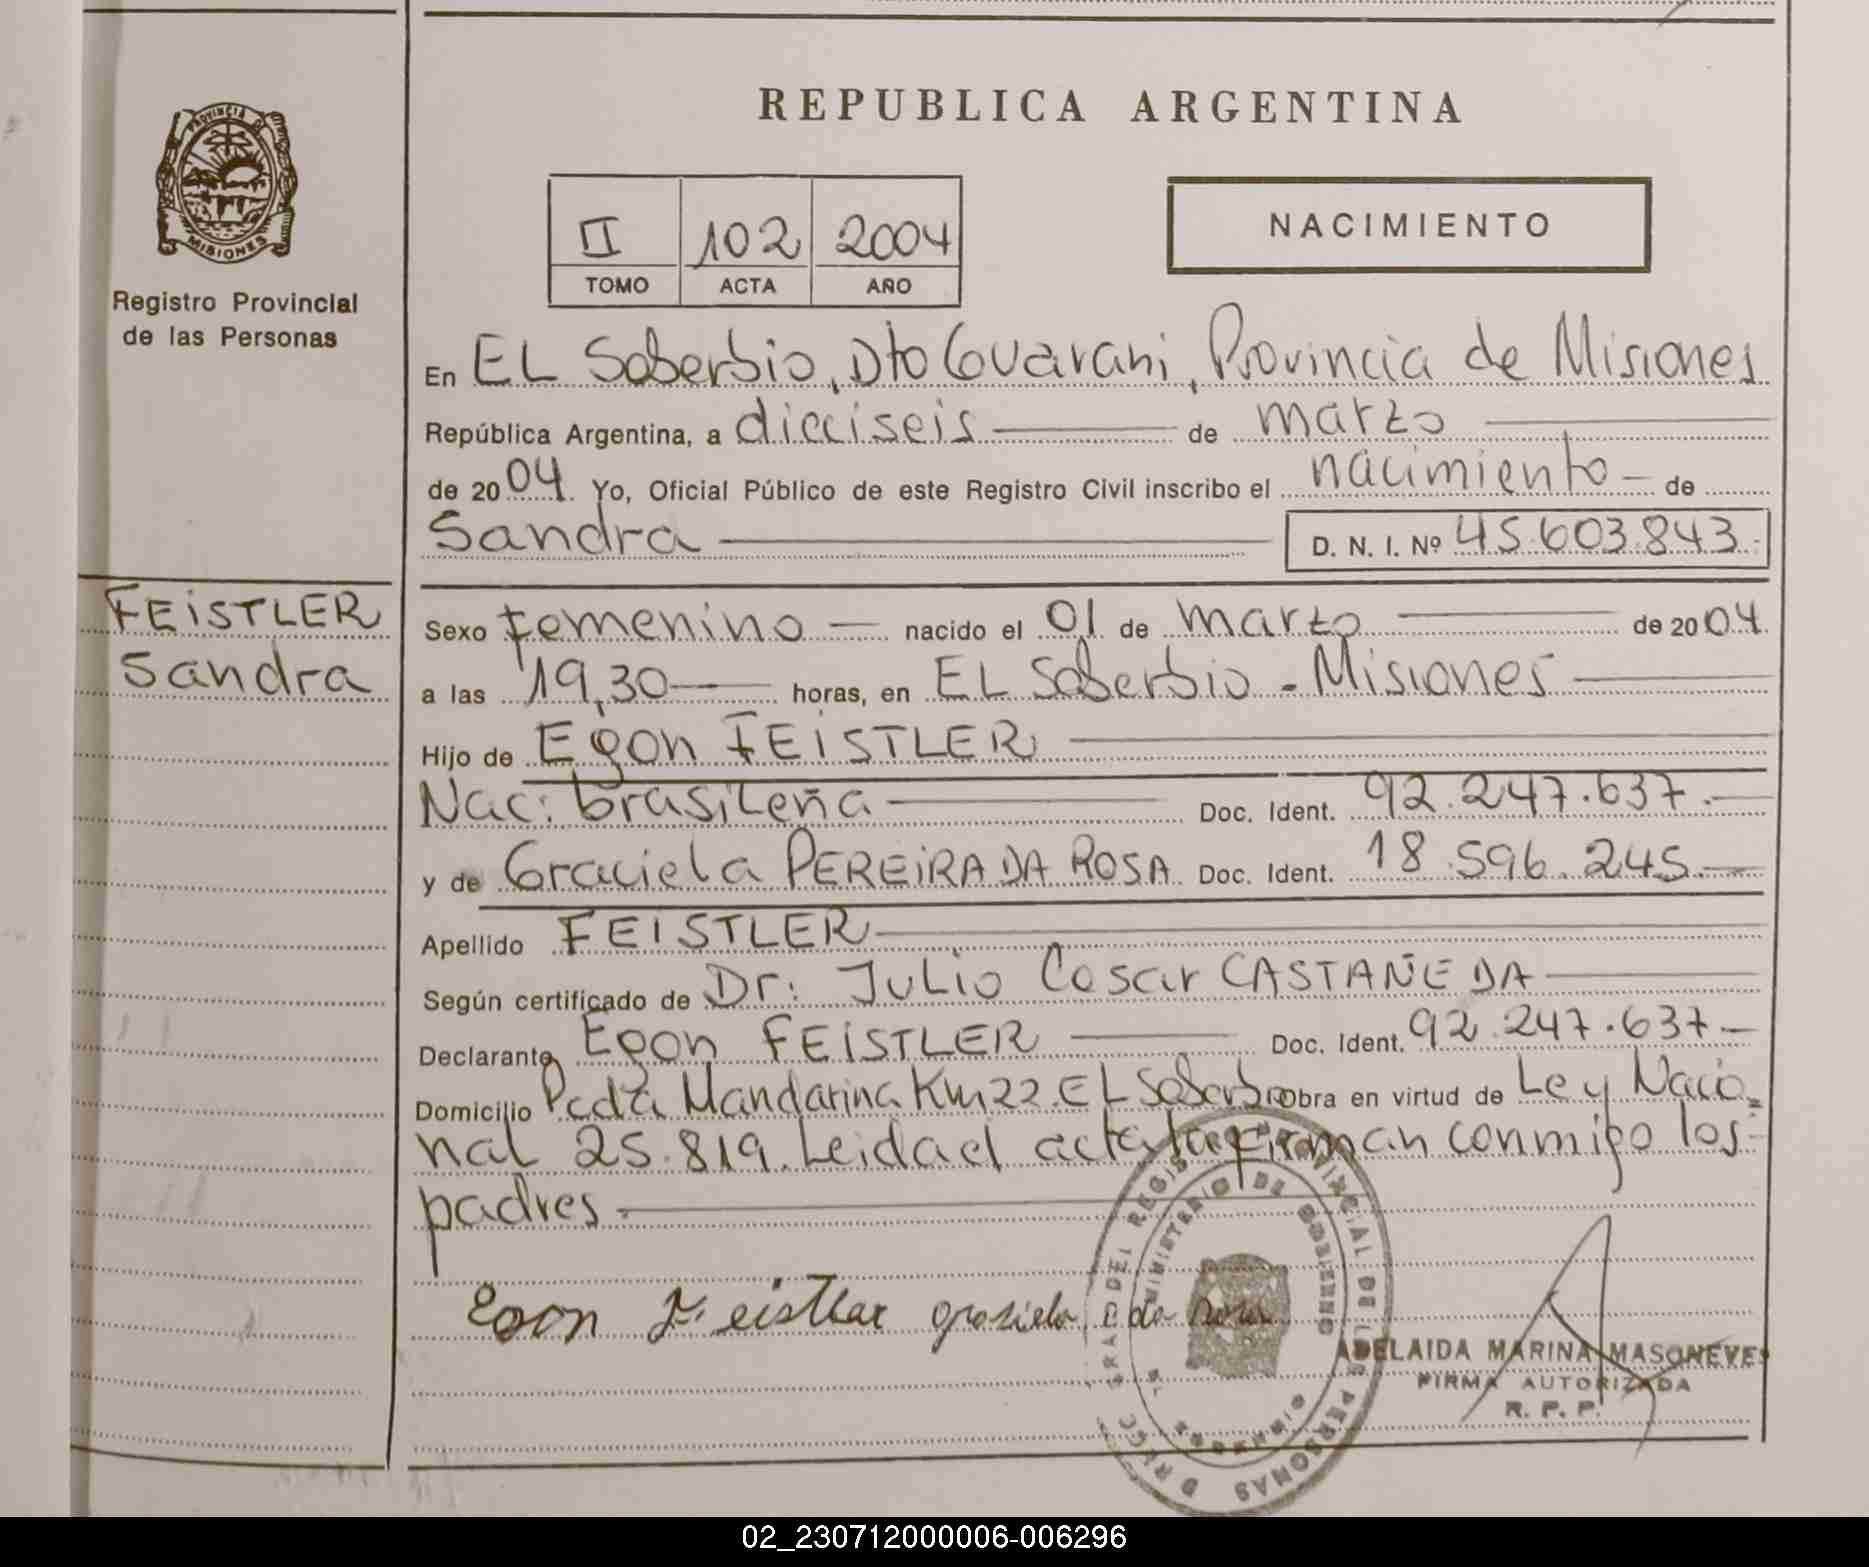 REPUBLICA ARGENTINA
PROVINCIA DE
MISIONES
Registro Provincial
de las Personas
II 102 2004
TOMO ACTA AÑO
NACIMIENTO
En EL Soberbio, Dto Guarani, Provincia de Misiones
República Argentina, a dieciseis de marzo
de 2004. Yo, Oficial Público de este Registro Civil inscribo el nacimiento de
Sandra D. N. I. Nº 45.603.843.
FEISTLER
Sandra
Sexo femenino nacido el 01 de marzo de 2004.
a las 19,30 horas, en EL Soberbio - Misiones
Hijo de Egon FEISTLER
Nac: brasileña Doc. Ident. 92.247.637.
y de Graciela PEREIRA DA ROSA Doc. Ident. 18.596.245.
Apellido FEISTLER
Según certificado de Dr: Julio Cesar CASTAÑEDA
Declarante Egon FEISTLER Doc. Ident. 92.247.637.
Domicilio Pcda Mandarina Km 22. EL Soberbio Obra en virtud de Ley Nacio=
nal 25.819. Leida el acta la firman conmigo los
padres.
Egon Feistler grasiela p da rosa
ADELAIDA MARINA MASONEVES
FIRMA AUTORIZADA
R. P. P.
DIRECC. GRAL DEL REGISTRO PROVINCIAL DE LAS PERSONAS
MINISTERIO DE GOBIERNO
MISIONES
02_230712000006-006296